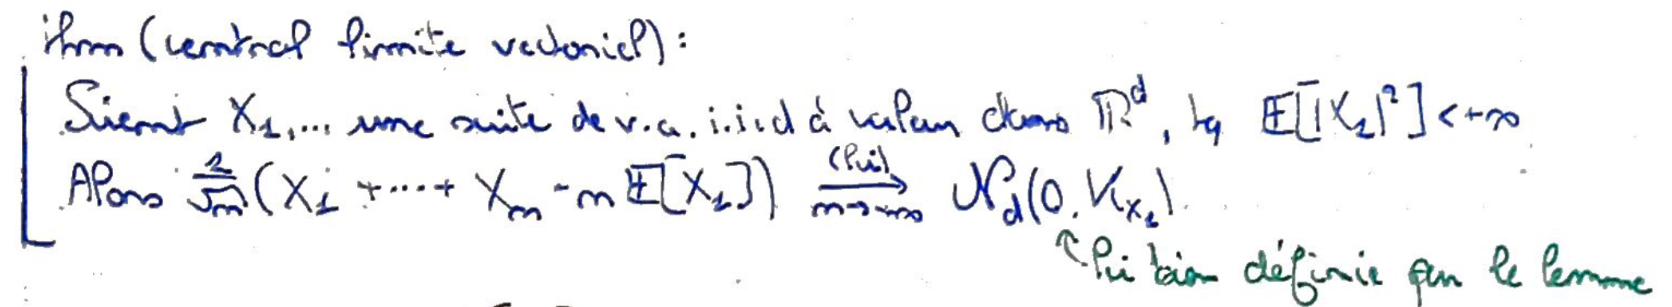 thm (central limite vectoriel) :
Soient X₁,... une suite de v.a. i.i.d à valeur dans ℝᵈ, tq 𝔼[|X₁|²] < +∞
Alors 1/√n (X₁ + ... + Xₙ - n 𝔼[X₁]) →(loi) n→+∞ 𝒩_d(0, K_{X₁}).
↑ loi bien définie par le lemme